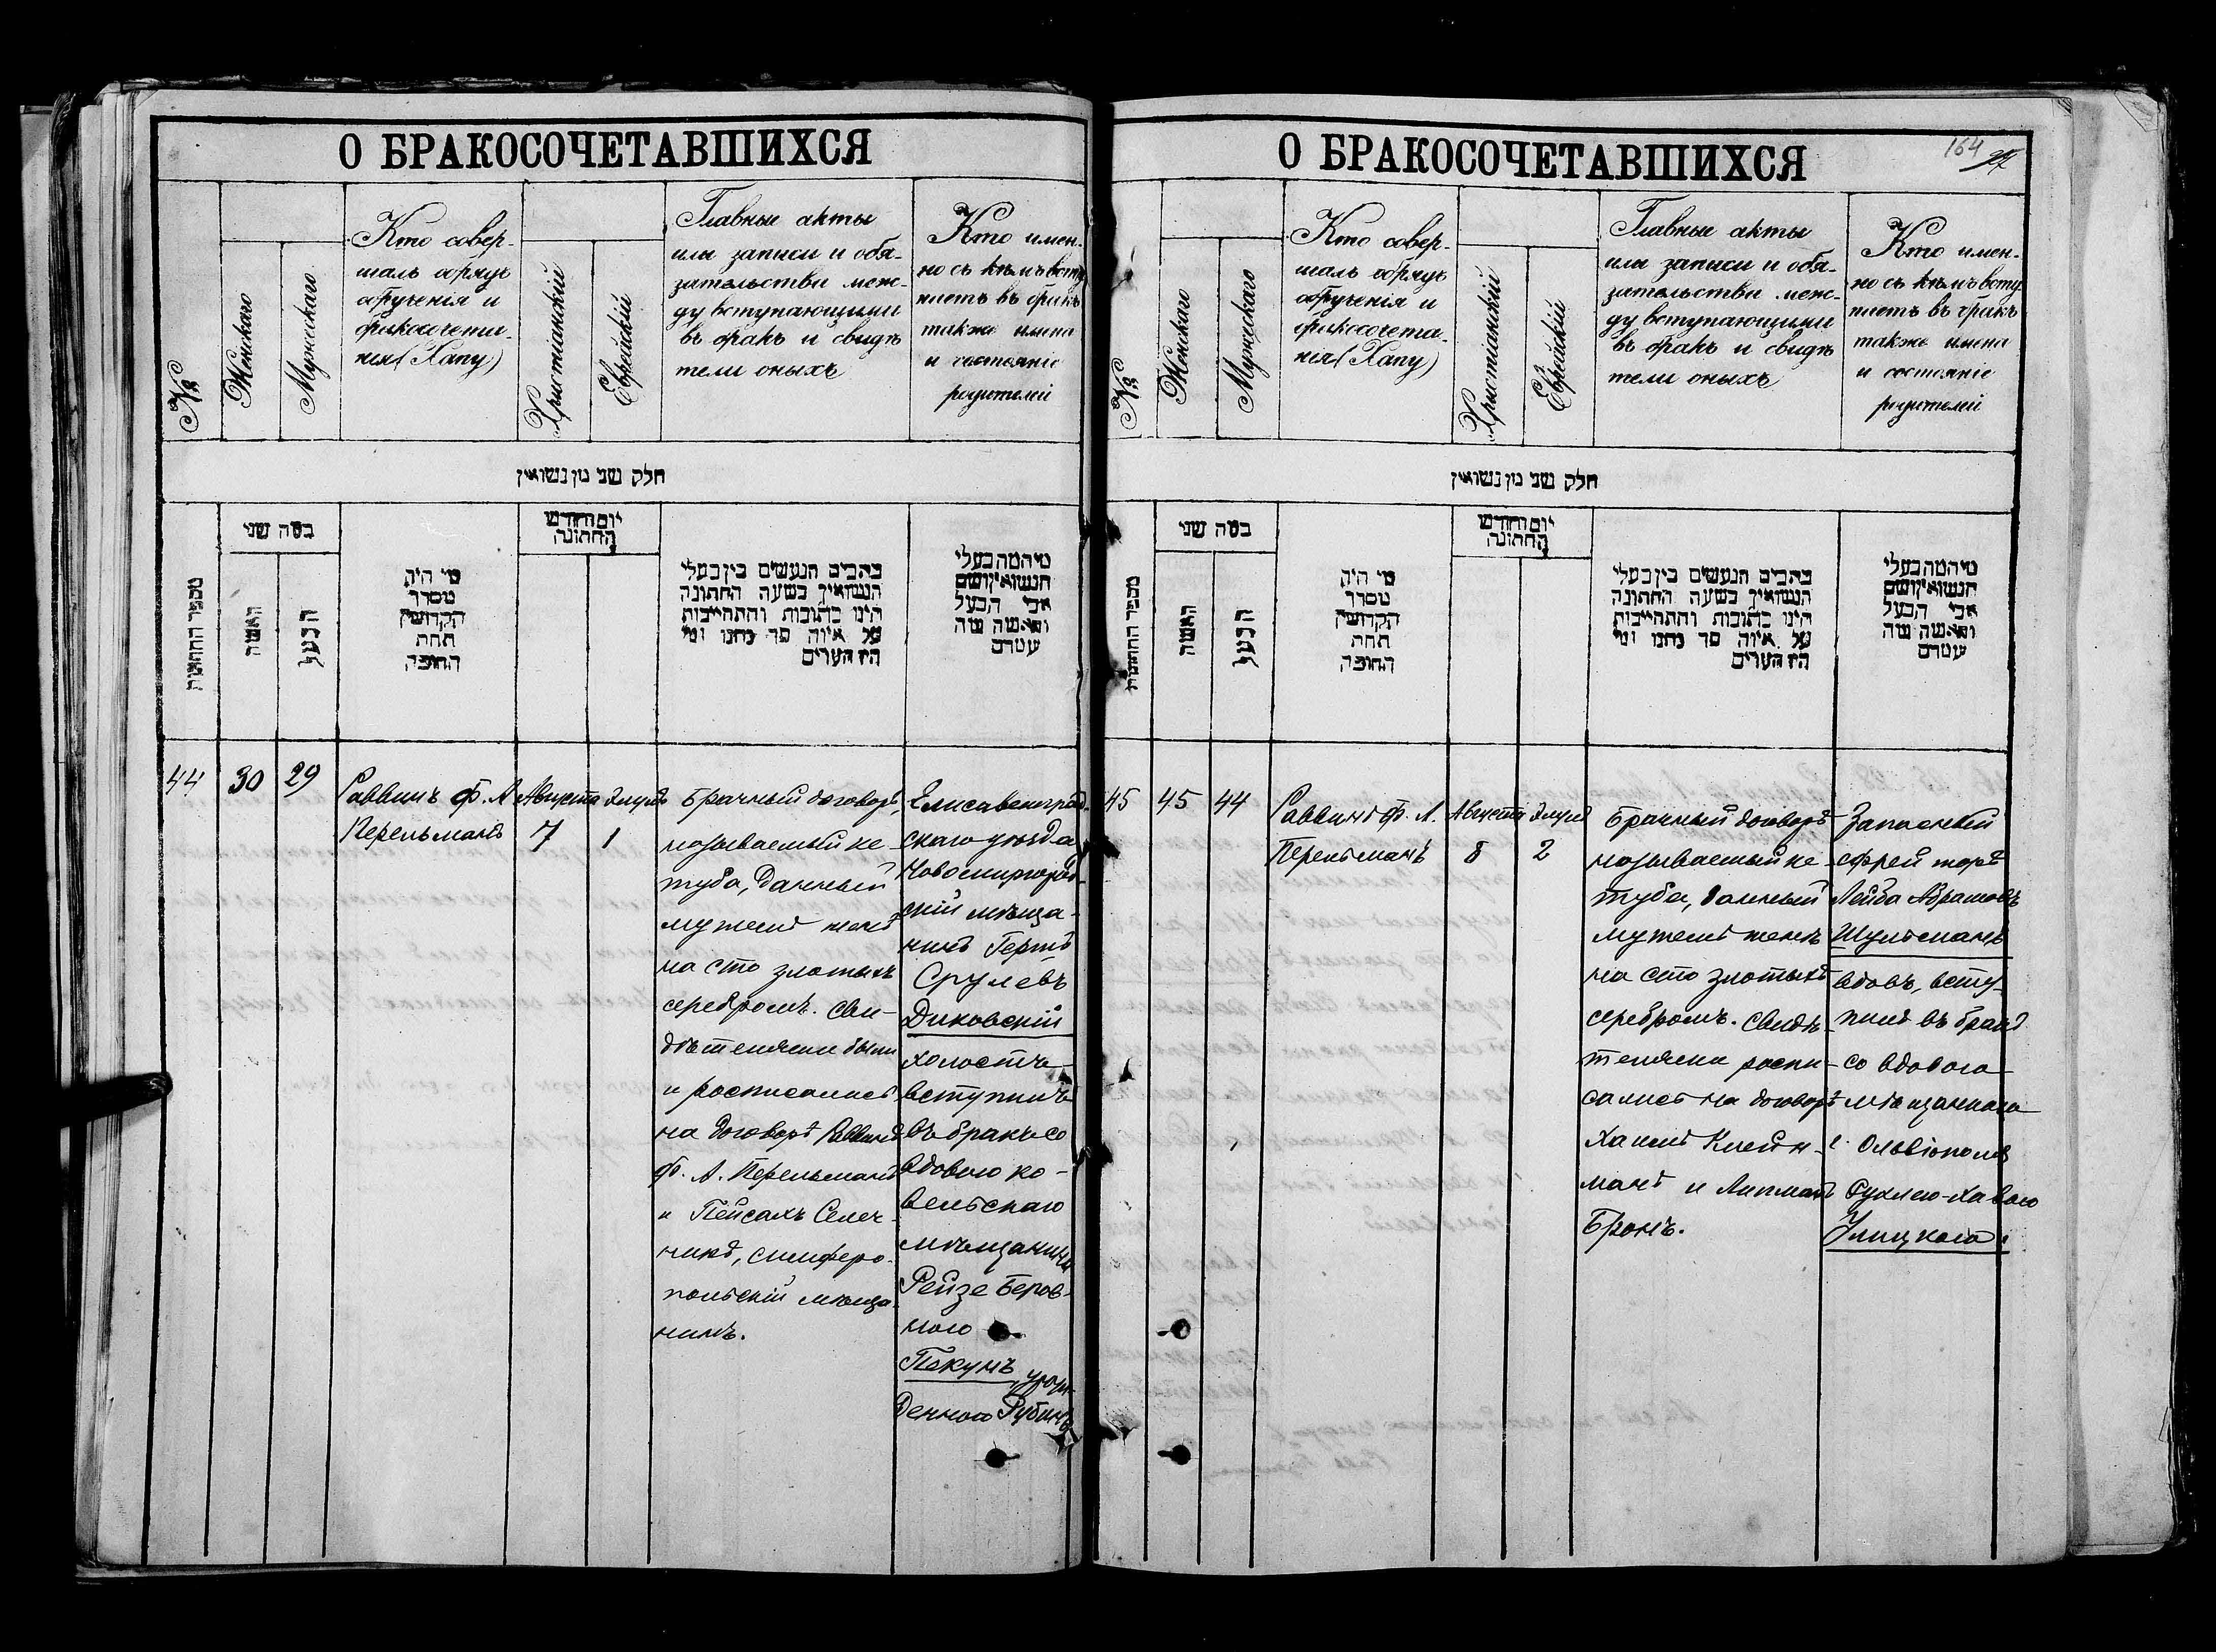 О БРАКОСОЧЕТАВШИХСЯ
№
Женскаго
Мужескаго
Кто совер-
шалъ обрядъ
обрученія и
бракосочета-
нія (Хапу)
Христіанскій
Еврейскій
Главные акты
или записи и обя-
зательства меж-
ду вступающими
въ бракъ и свидѣ
тели оныхъ
Кто имен-
но съ кѣмъ всту
паетъ въ бракъ
также имена
и состояніе
родителей
חלק שני מן נשואין
מספר החתונות
בסה שני
האשה
הבעל
מי היה
מסדר
הקדושין
תחת
החופה
יום וחודש
החתונה
כתבים הנעשים בין בעלי
הנשואין בשעה החתונה
הינו כתובות והתחייבות
על איזה סך נתנו ומי
היו העדים
מיהמה בעלי
הנשואין ושם
אבי הבעל
והאשה ומה
מעמדם
44
30
29
Раввинъ Ф. А
Перельманъ
Августа
7
Элулъ
1
Брачный договоръ,
называемый ке-
туба, данный
мужемъ женѣ
на сто злотыхъ
серебромъ. Сви-
дѣтелями были
и росписались
на договорѣ Раввинъ
Ф. А. Перельманъ
и Пейсахъ Селеч-
никъ, симферо-
польскій мѣща-
нинъ.
Елисаветград-
скаго уѣзда
Новомиргород-
скій мѣща-
нинъ Гершъ
Срулевъ
Диковскій
холостъ
вступилъ
въ бракъ со
вдовою ко-
вельскаго
мѣщанина
Рейзе Беров-
ною
Пекунъ, урож-
денною Рубинъ
О БРАКОСОЧЕТАВШИХСЯ
164
27
№
Женскаго
Мужескаго
Кто совер-
шалъ обрядъ
обрученія и
бракосочета-
нія (Хапу)
Христіанскій
Еврейскій
Главные акты
или записи и обя-
зательства меж-
ду вступающими
въ бракъ и свидѣ
тели оныхъ
Кто имен-
но съ кѣмъ всту
паетъ въ бракъ
также имена
и состояніе
родителей
חלק שני מן נשואין
מספר החתונות
בסה שני
האשה
הבעל
מי היה
מסדר
הקדושין
תחת
החופה
יום וחודש
החתונה
כתבים הנעשים בין בעלי
הנשואין בשעה החתונה
הינו כתובות והתחייבות
על איזה סך נתנו ומי
היו העדים
מיהמה בעלי
הנשואין ושם
אבי הבעל
והאשה ומה
מעמדם
45
45
44
Раввинъ Ф. А.
Перельманъ
Августа
8
Элулъ
2
Брачный договоръ
называемый ке-
туба, данный
мужемъ женѣ
на сто злотыхъ
серебромъ. Свидѣ-
телями роспи-
сались на договорѣ
Хаимъ Клейн-
манъ и Липманъ
Бронъ.
Запасный
ефрейторъ
Лейба Абрамовъ
Шульманъ
вдовъ, всту-
пилъ въ бракъ
со вдовою
мѣщанкою
г. Ольвіополя
Рухлею-Хавою
Улицкою.